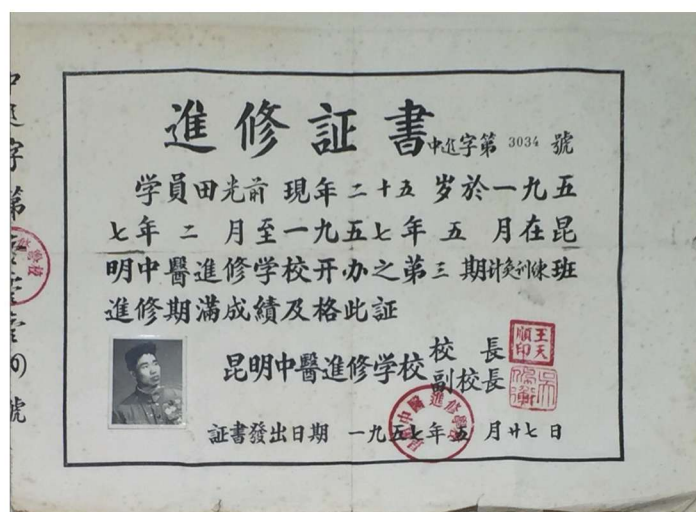 進修証書
中進字第 3034 號
学員田光前 現年二十五 岁於一九五
七年 二 月至一九五七年 五 月在昆
明中醫進修学校开办之第三期针灸训练班
進修期滿成績及格此証
昆明中醫進修学校
校 長
副校長
王天順印
証書發出日期 一九五七年五月廿七日
中進字第
號